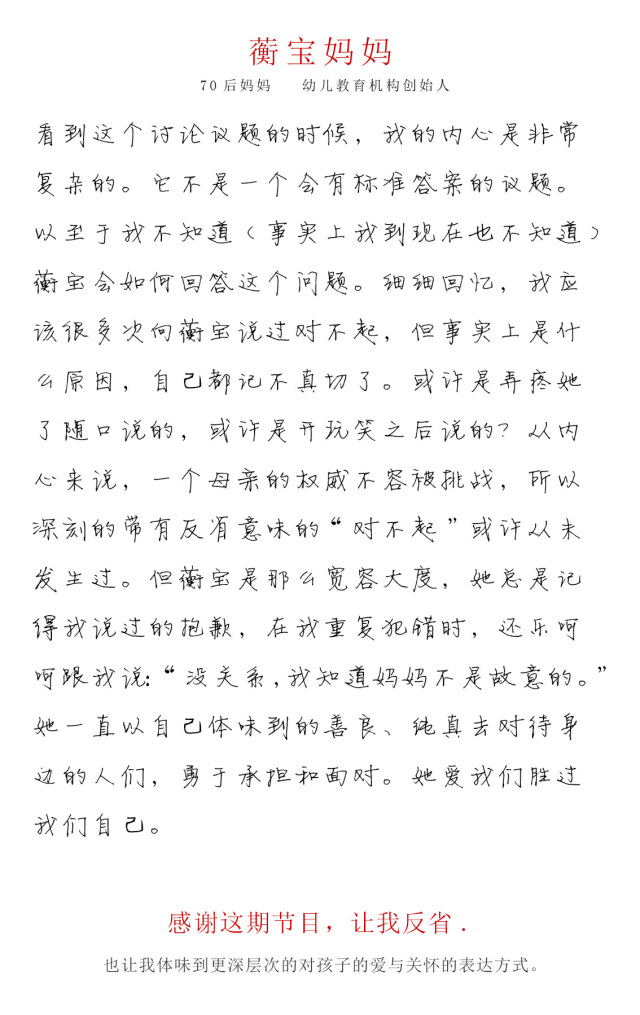 蘅宝妈妈
70后妈妈 幼儿教育机构创始人
看到这个讨论议题的时候，我的内心是非常
复杂的。它不是一个会有标准答案的议题。
以至于我不知道（事实上我到现在也不知道）
蘅宝会如何回答这个问题。细细回忆，我应
该很多次向蘅宝说过对不起，但事实上是什
么原因，自己都记不真切了。或许是弄疼她
了随口说的，或许是开玩笑之后说的？从内
心来说，一个母亲的权威不容被挑战，所以
深刻的带有反省意味的“对不起”或许从未
发生过。但蘅宝是那么宽容大度，她总是记
得我说过的抱歉，在我重复犯错时，还乐呵
呵跟我说：“没关系，我知道妈妈不是故意的。”
她一直以自己体味到的善良、纯真去对待身
边的人们，勇于承担和面对。她爱我们胜过
我们自己。
感谢这期节目，让我反省.
也让我体味到更深层次的对孩子的爱与关怀的表达方式。